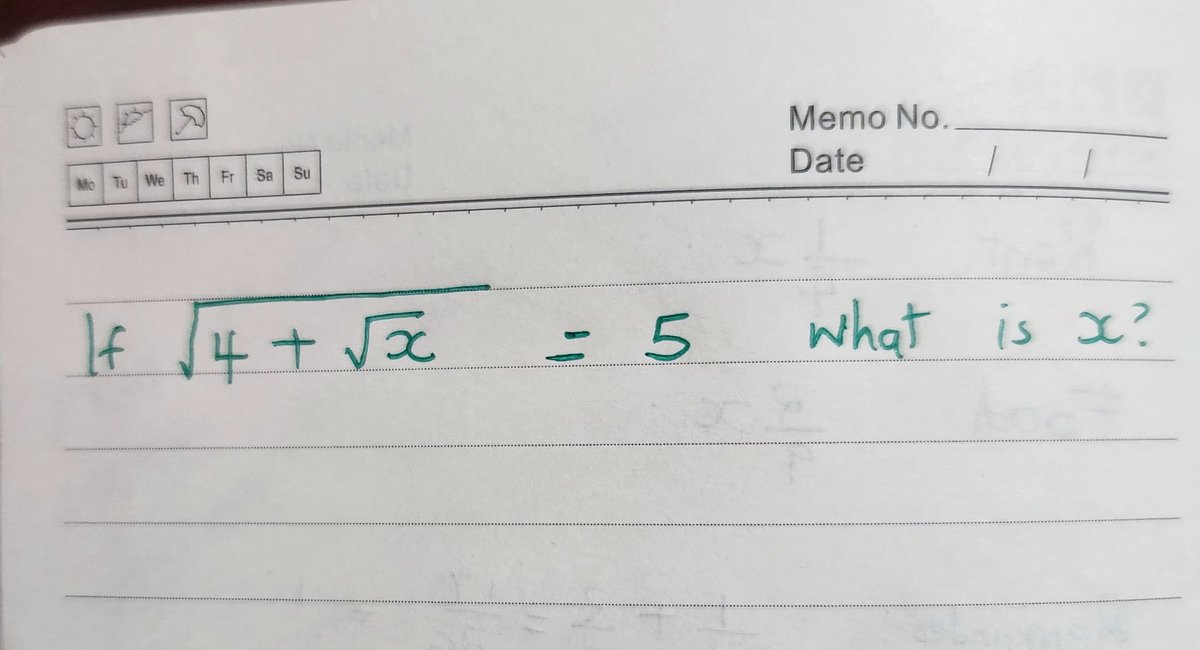 Memo No.
Date / /
Mo Tu We Th Fr Sa Su
If √(4 + √x) = 5 what is x?